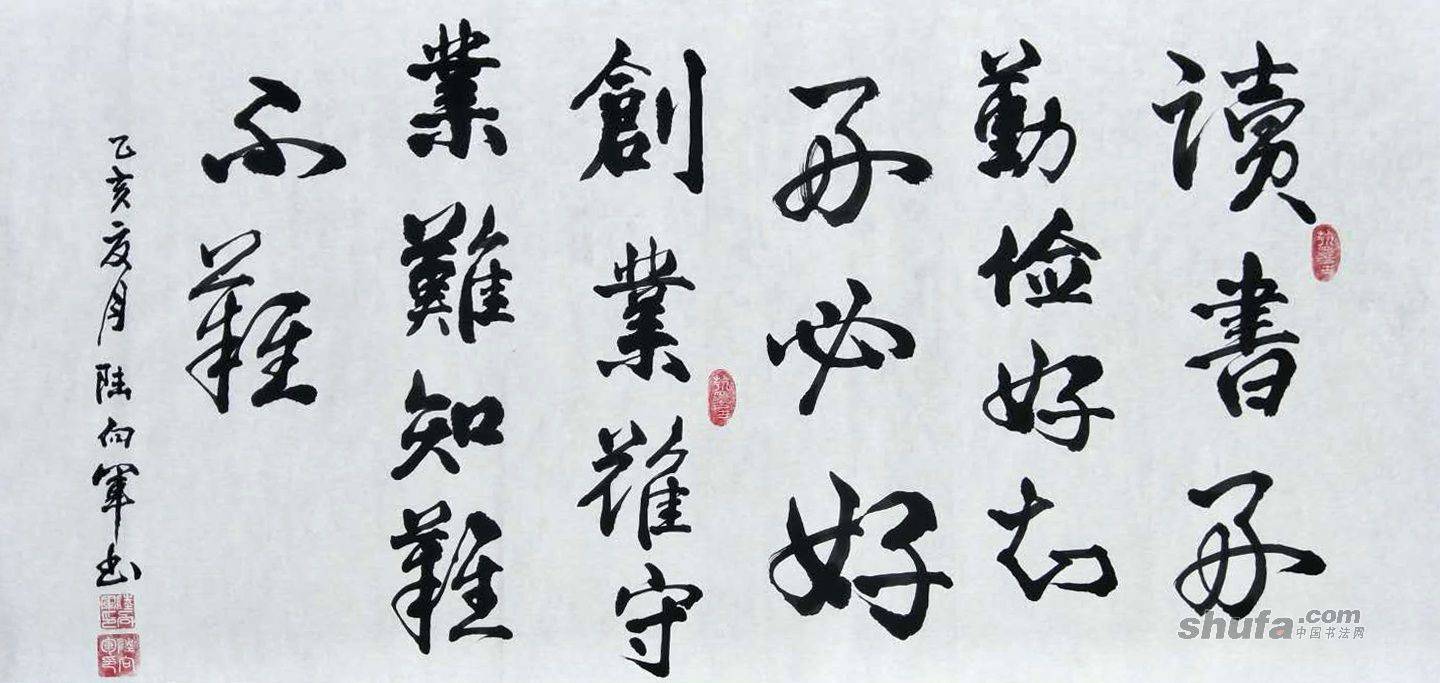 讀書好
勤俭好知
好必好
創業難守
業難知難
不難
己亥夏月陆向軍书
shufa.com
中国书法网